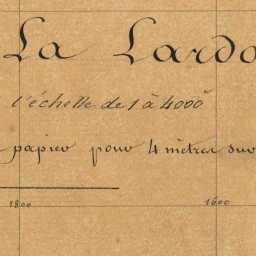 La Lardo
l'échelle de 1 à 4000
papier pour 4 mètres sur
1800 1600